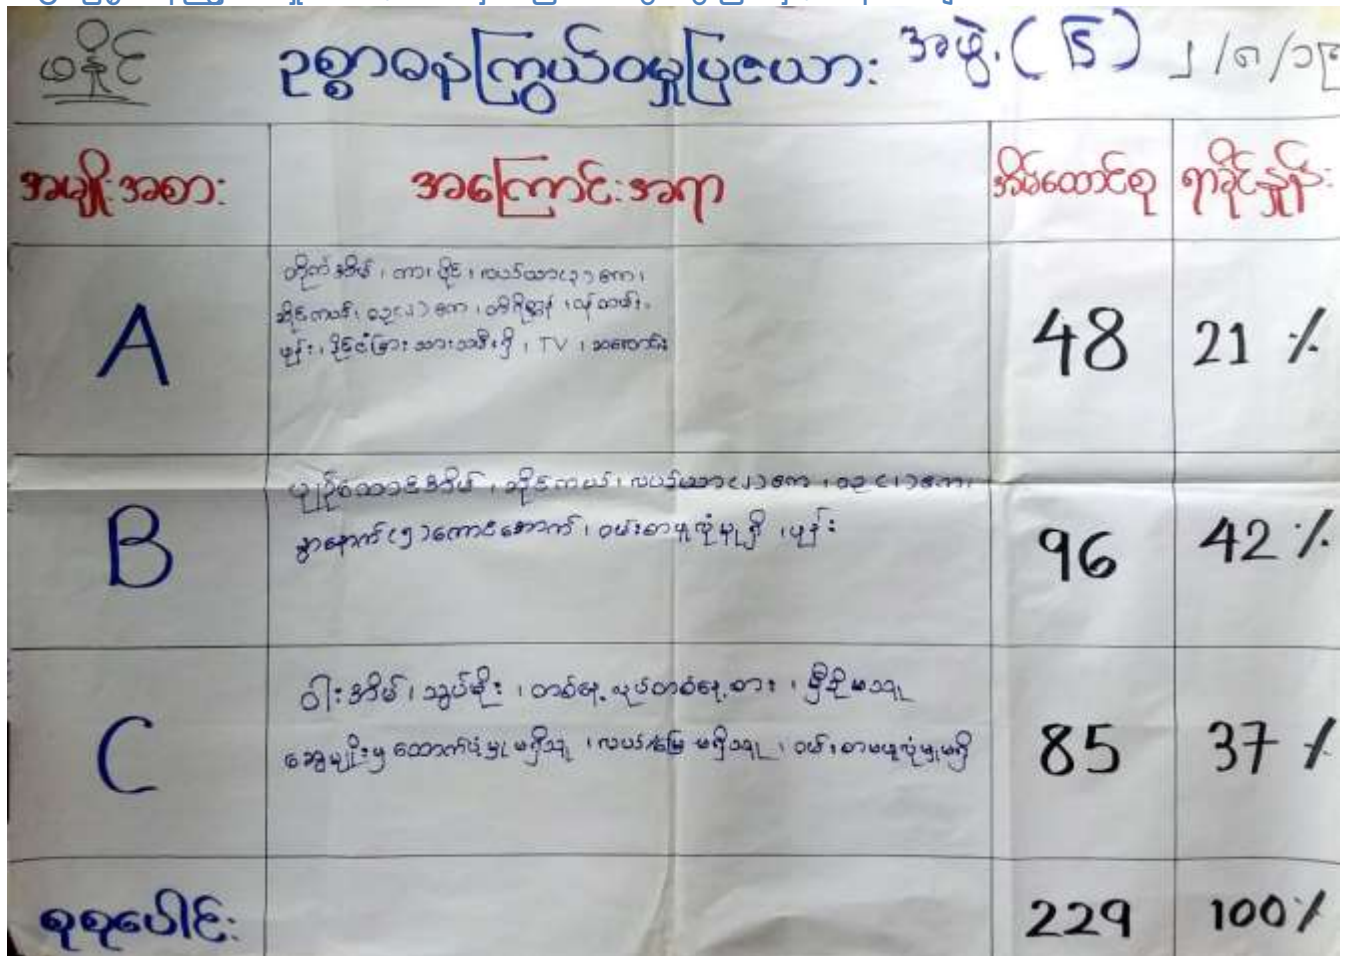 ဖနိုင်
ဥစ္စာဓနကြွယ်ဝမှုပြဇယား အဖွဲ့ (၆) ၂/၈/၁၉
အမျိုးအစား အကြောင်းအရာ အိမ်ထောင်စု ရာခိုင်နှုန်း
A
တိုက်အိမ်၊ ကား၊
ဖုန်း၊ နိုင်ငံခြားသားသမီးရှိ၊ TV၊
48 21 %
B
ပျဉ်ထောင်အိမ်၊ ဆိုင်ကယ်၊ လယ်ယာ(၂)ဧက၊
နွားနောက်(၅)ကောင်အောက်၊ ဝမ်းစာဖူလုံမှုရှိ၊ ဖုန်း
96 42 %
C
ဝါးအိမ်၊ သွပ်မိုး၊ တစ်နေ့လုပ်တစ်နေ့စား၊ မှီခိုမဲ့သူ
ဆွေမျိုးမှထောက်ပံ့မှုမရှိသူ၊ လယ်/မြေ မရှိသူ၊ ဝမ်းစာမဖူလုံမှုမရှိ
85 37 %
စုစုပေါင်း 229 100%